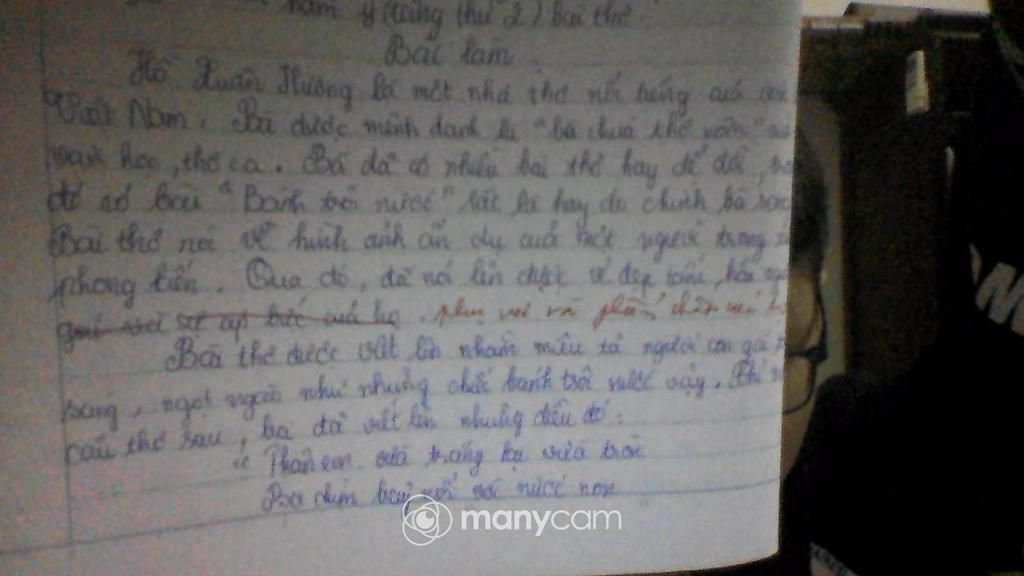 năm ý (tiếng thứ 2) bài thơ.
Bài làm.
Hồ Xuân Hương là một nhà thơ nổi tiếng của
Việt Nam. Bà được mệnh danh là "bà chúa thơ nôm"
văn học, thơ ca. Bà đã có nhiều bài thơ hay để đời,
đó có bài "Bánh trôi nước" rất là hay do chính bà
Bài thơ nói về hình ảnh ẩn dụ của một người trong
phong kiến. Qua đó, đã nói lên được vẻ đẹp
áp bức của họ. phụ nữ và phẩm chất
Bài thơ được viết lên nhằm miêu tả người con gái
ngọt ngào như những chiếc bánh trôi nước vậy.
câu thơ sau, bà đã viết lên những điều đó:
" Thân em vừa trắng lại vừa tròn
Ba chìm bảy nổi với nước non
manycam